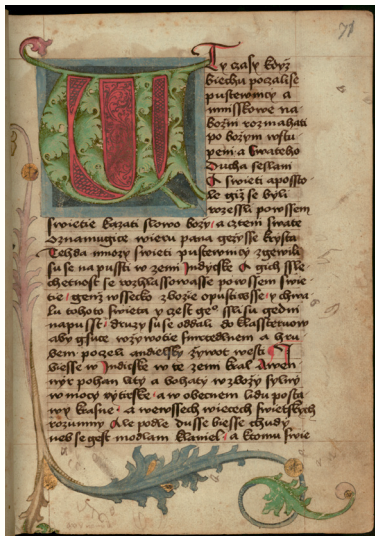 71
W Ty czasy kdyz
biechu poczalise
pustewniczy a
mnisskowe na
bozni rozmahati
po bozym wstu
peni a Swateho
Ducha seslani
A swieti apossto
le giz se byli
rozessli powssem
swietie kazati slowo bozy / a cztem swate
oznamugice wieru pana gezysse krysta
Tehda mnozy swieti pustewniczy zgewili
su se na pussti w zemi Indyske A gich ssle
chetnost se rozhlassowasse powssem swie
tie / gemz wssecko zbozie opustiwsse / y chwa
lu tohoto swieta y czest geº ssli su gedni
napusst / druzy su se oddali do klasstetuow
aby gsuce wzywotie smrtedlnem a hru
bem poczeli andelsky zywot westi J
biesse w Indicke w te zemi kral Awen
nyr pohan lity a bohaty wzbozy sylny
w moczy rytirske / a w obecnem lidu posta
wy krasne / a wewssech wiecech swietskych
rozumny Ale podle dusse biesse chudy
neb se gest modlam klaniel / a komu swie